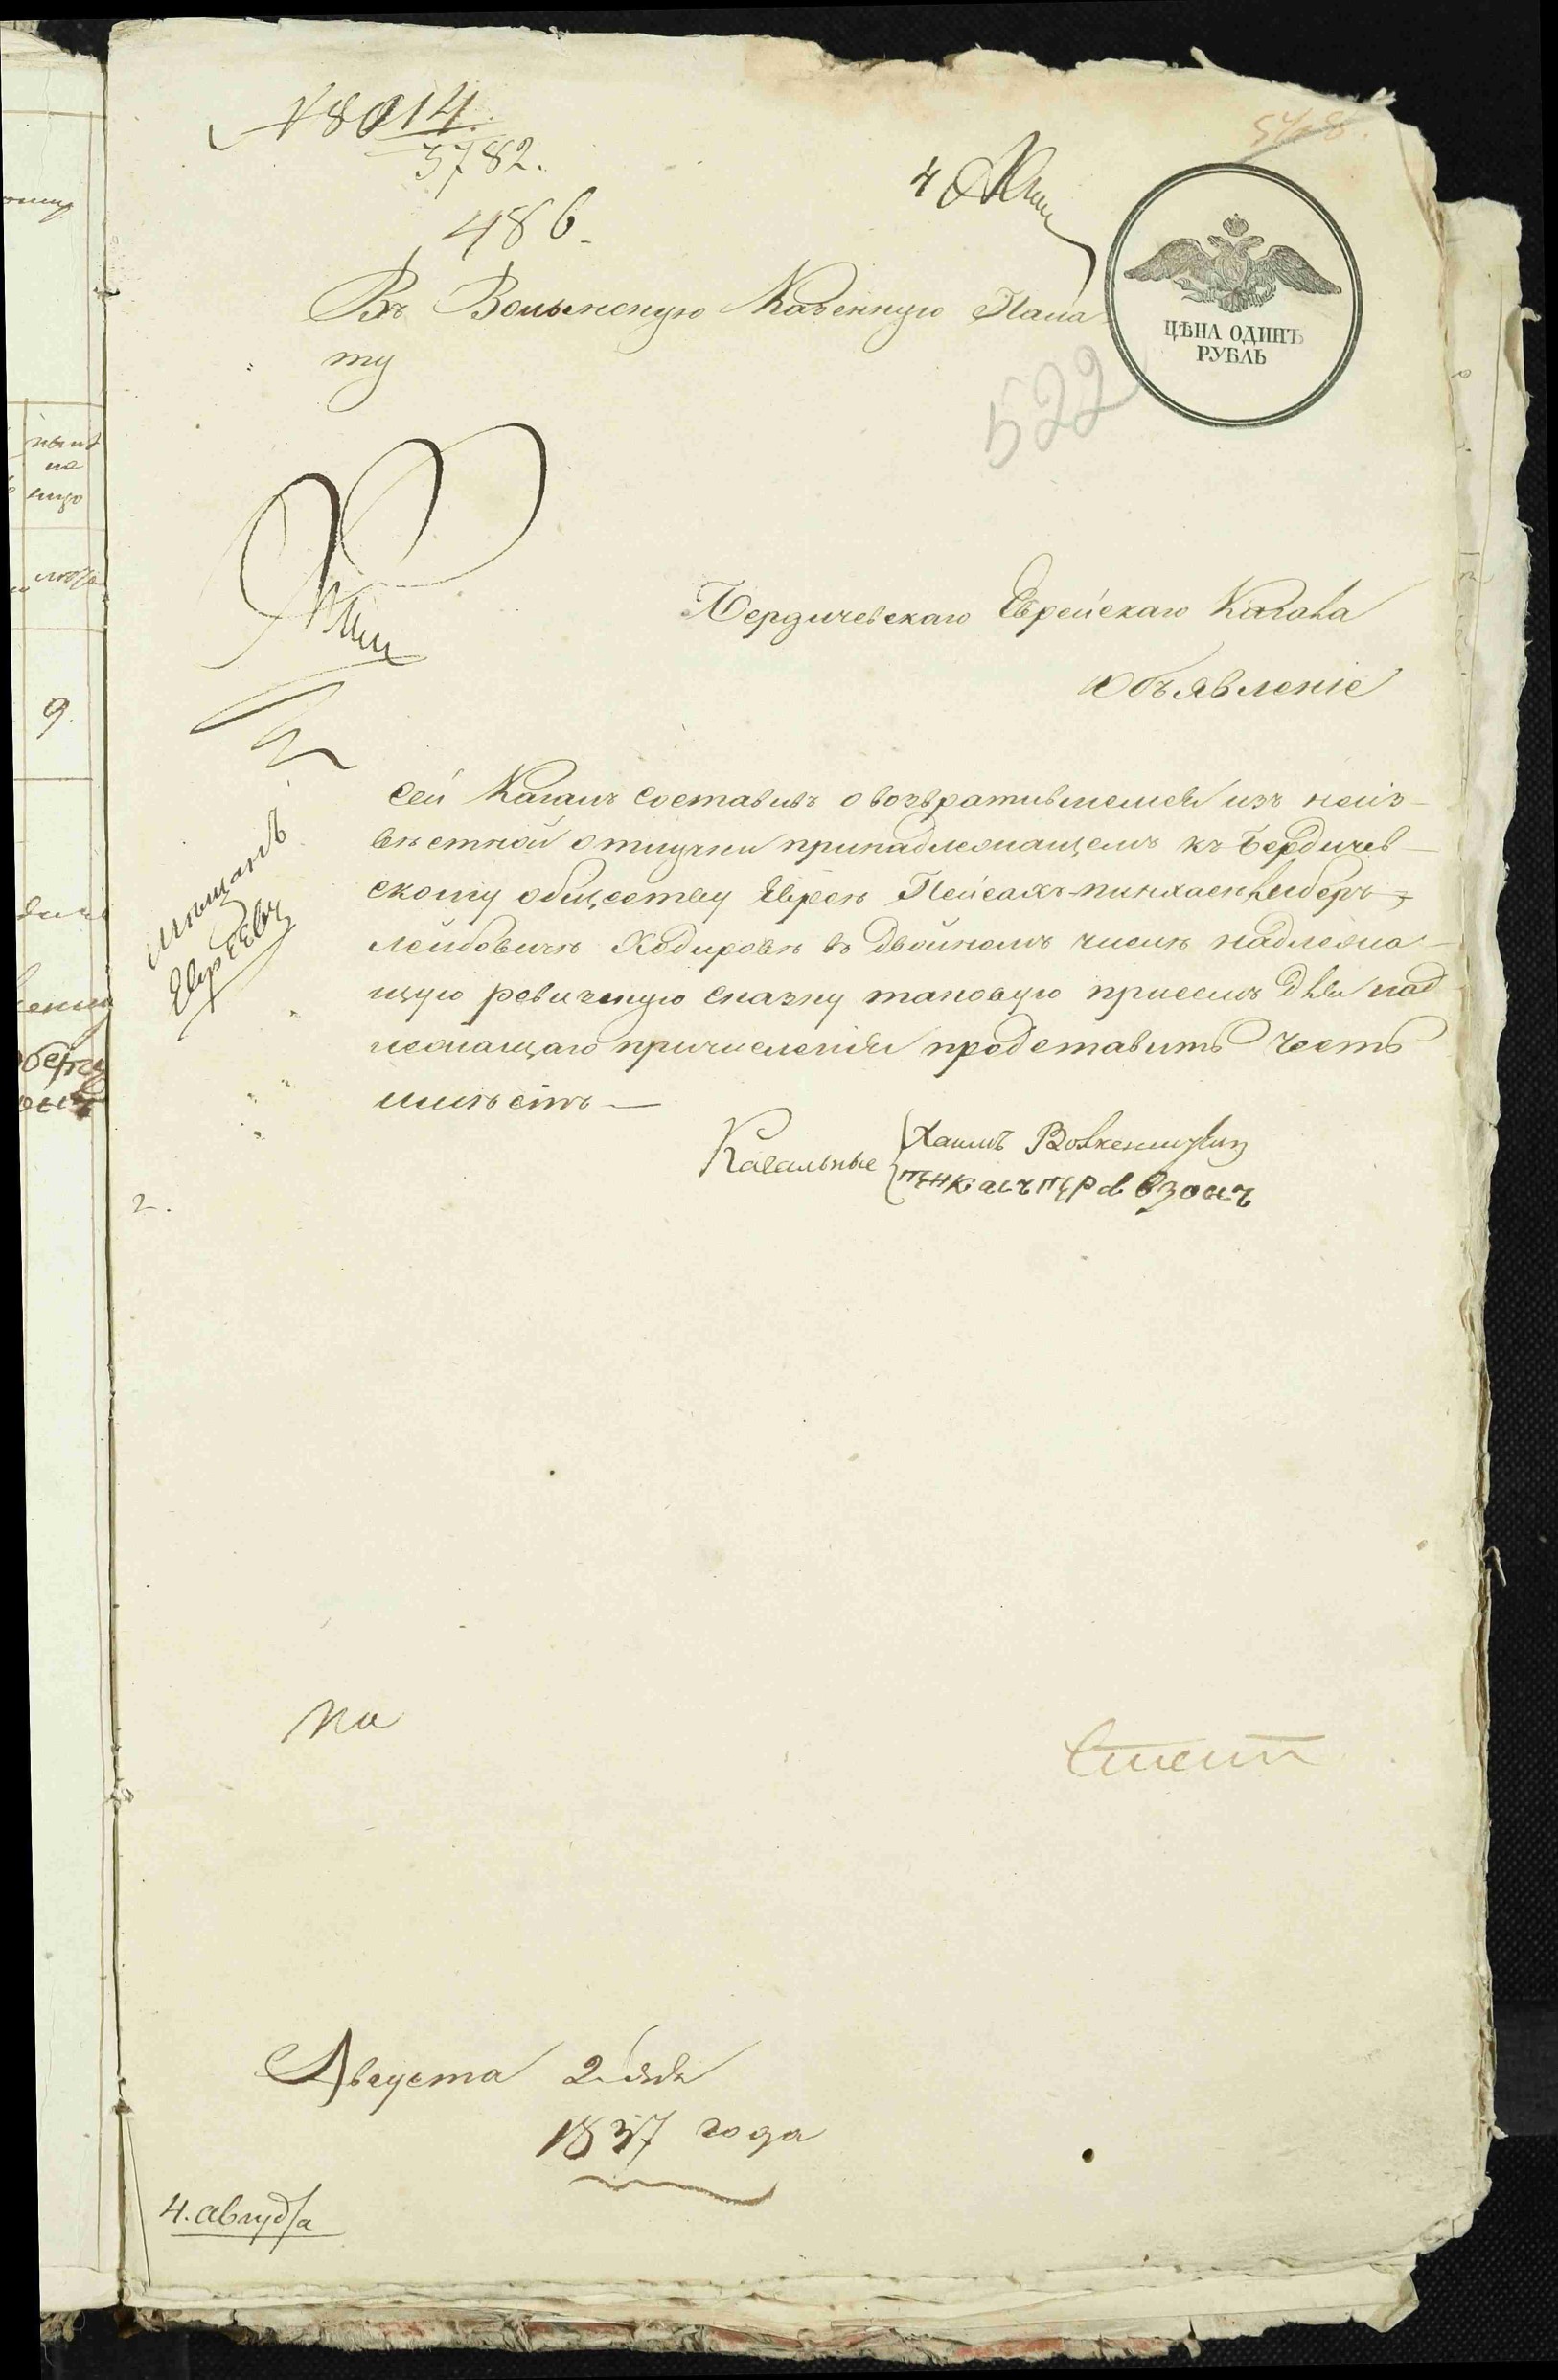 № 8014.
3782.
486
548.
ЦѢНА ОДИНЪ
РУБЛЬ
Въ Волынскую Казенную Пала-
ту
522
Бердичевскаго Еврейскаго Кагала
Объявленіе
Сей Кагалъ составивъ о возвратившемся изъ неиз-
вѣстной отлучки принадлежащемъ къ Бердичев-
скому обществу Еврею Пейсахъ-Пинхасѣ Либеръ-
Лейбовичѣ Ходировѣ въ двойномъ числѣ надлежа-
щую ревизскую сказку таковую присемъ для над
лежащаго причисленія представить честь
имѣетъ —
мѣщанъ
Евреевъ
Кагальные
Хаимъ
2.
На
Августа 2 дня
1837 года
4. августа
9.